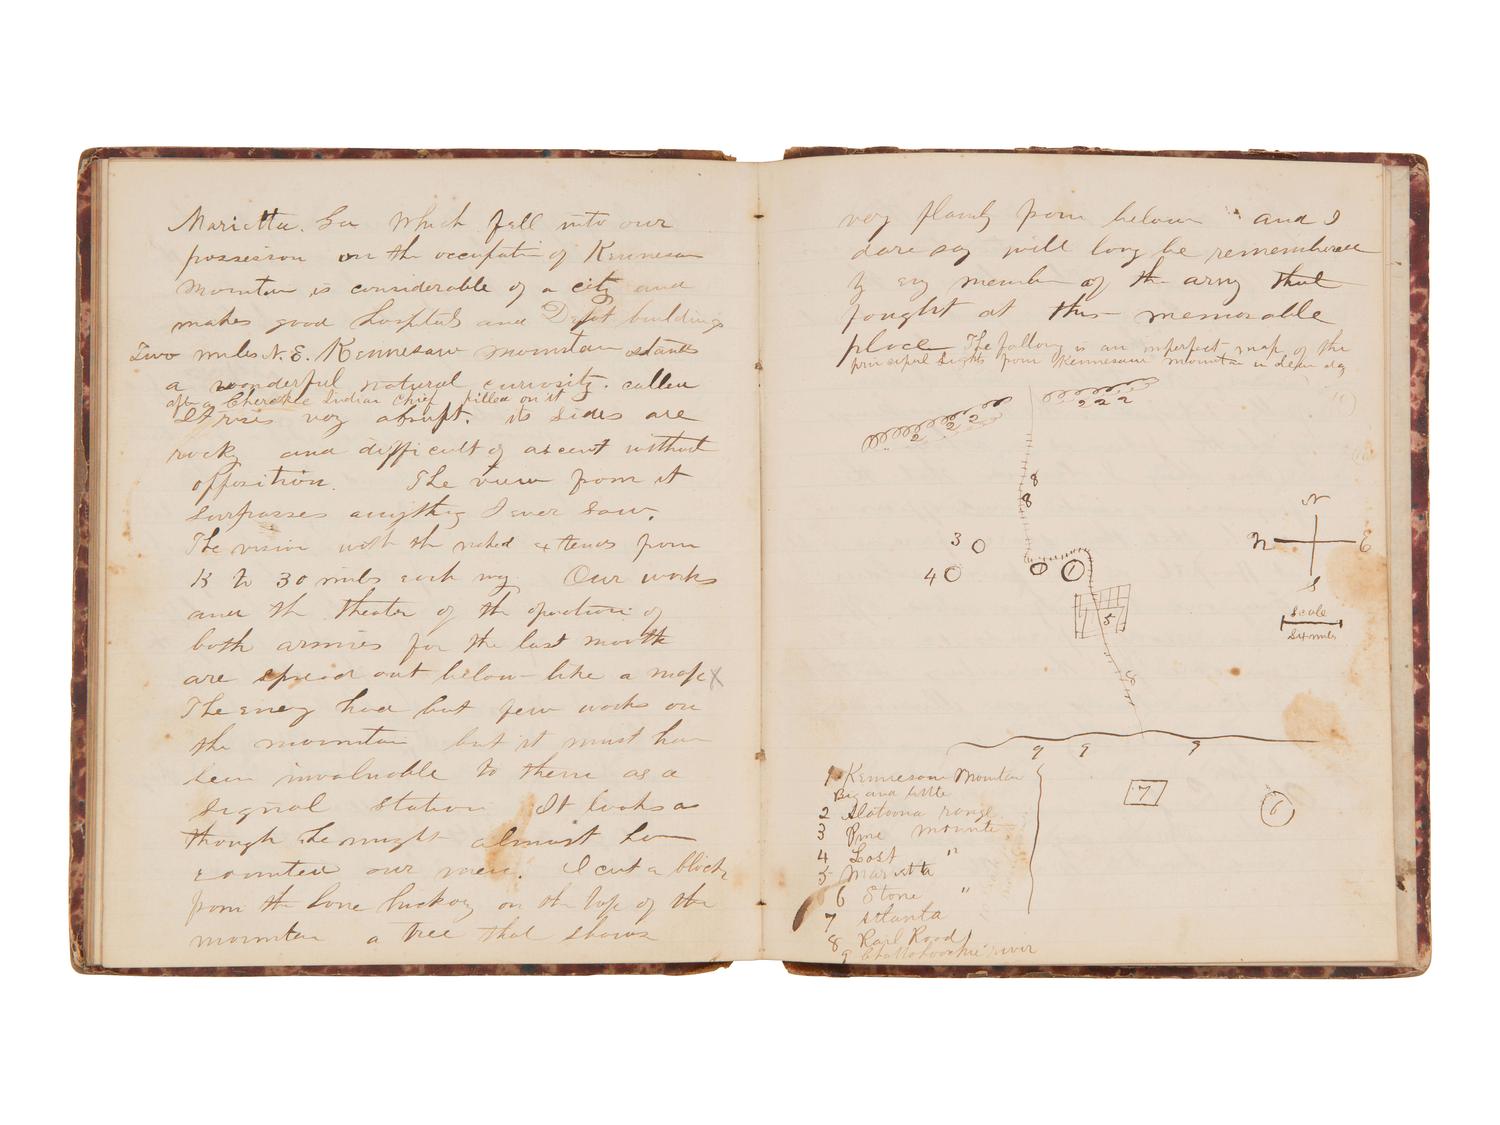 Marietta. Ga Which fell into our
possession on the occupation of Kennesaw
Mountain is considerable of a city and
makes good hospitals and Depot buildings
Two miles N.E. Kennesaw mountain stands
a wonderful natural curiosity. called
after a Cherokee Indian Chief killed on it
It rises very abrupt. its sides are
rocky and difficult of ascent without
opposition. The view from it
surpasses anything I ever saw.
The vision with the naked extends from
15 to 30 miles each way. Our works
and the theater of the operations of
both armies for the last month
are spread out below like a map X
The enemy had but few works on
the mountain but it must have
been invaluable to them as a
signal station It looks as
though he might almost have
counted our men. I cut a block
from the lone hickory on the top of the
mountain a tree that shows
very plainly from below and I
dare say will long be remembered
by evy member of the army that
fought at this memorable
place The following is an imperfect map of the
principal sights from Kennesaw Mountain
2 2 2
2 2 2
8
8
3
4
1
1
5
8
N
E
S
Scale
9 9 9
7
6
1 Kennesaw Mountain
Big and little
2 Alatoona range
3 Pine mountain
4 Lost "
5 Marietta
6 Stone "
7 Atlanta
8 Rail Road
9 Chattahoochie river